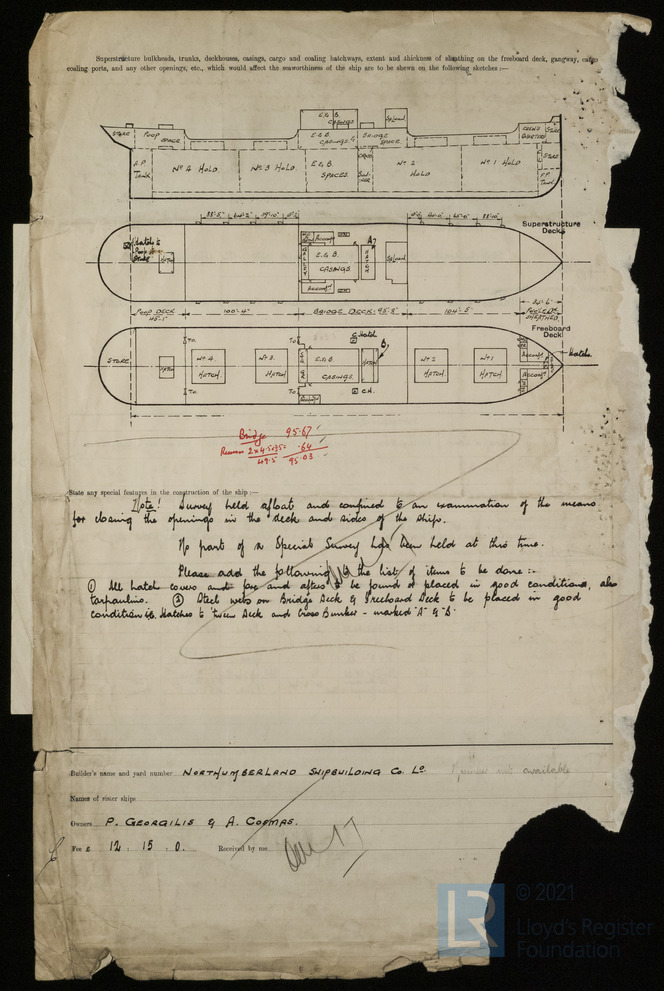 Superstructure bulkheads, trunks, deckhouses, casings, cargo and coaling hatchways, extent and thickness of sheathing on the freeboard deck, gangway, cargo
coaling ports, and any other openings, etc., which would affect the seaworthiness of the ship are to be shewn on the following sketches:—
E. & B. CASINGS
STORE
POOP SPACE
E & B. CASINGS
BRIDGE SPACE
CREW'S QUARTERS
STORE
A.P. TANK
No 4 HOLD
No 3 HOLD
E. & B. SPACES
CROSS BUNKER
No 2 HOLD
No 1 HOLD
STORE
F.P. TANK
Superstructure Decks
HATCH
E. & B. CASINGS
A
POOP DECK
100'-4"
BRIDGE DECK 95'-8"
104'-5"
SHEATHED
Freeboard Deck
Hatch
B
STORE
HATCH
No 4 HATCH
No 3. HATCH
E. & B. CASINGS
No 2 HATCH
No 1 HATCH
Hatch
C.H.
Bridge 95.67
.64
49.5 95.03
State any special features in the construction of the ship:—
Note! Survey held afloat and confined to an examination of the means
for closing the openings in the deck and sides of the ship.
No part of a Special Survey has been held at this time.
Please add the following to the list of items to be done:-
① All hatch covers and fore and afters to be found or placed in good conditions, also
tarpaulins. ② Steel webs on Bridge Deck & Freeboard Deck to be placed in good
condition i.e. Hatches to 'tween Deck and Cross Bunker - marked "A" & "B".
Builder's name and yard number NORTHUMBERLAND SHIPBUILDING Co. Ld. not available
Names of sister ships
Owners P. GEORGILIS & A. COFMAS.
Fee £ 12 : 15 : 0. Received by me
© 2021
LR Lloyd's Register
Foundation